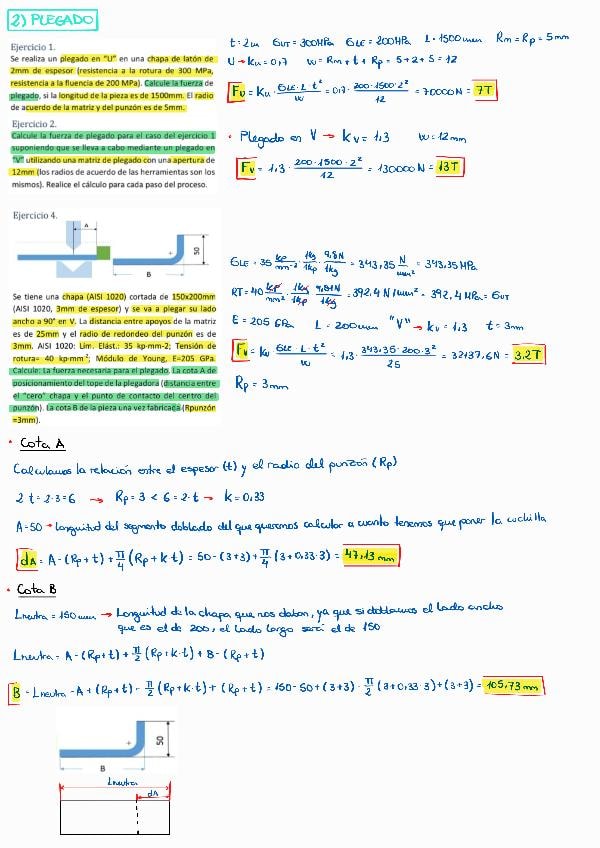 2) PLEGADO
Ejercicio 1.
Se realiza un plegado en "U" en una chapa de latón de
2mm de espesor (resistencia a la rotura de 300 MPa,
resistencia a la fluencia de 200 MPa). Calcule la fuerza de
plegado, si la longitud de la pieza es de 1500mm. El radio
de acuerdo de la matriz y del punzón es de 5mm.
t = 2m GUT = 300HPa GLE = 200HPa L = 1500mm Rm = Rp = 5mm
U → Ku = 0,7 W = Rm + t + Rp = 5+2+5 = 12
Fv = Ku · GLE · L · t² / W = 0,7 · 200·1500·2² / 12 = 70000N = 7T
Ejercicio 2.
Calcule la fuerza de plegado para el caso del ejercicio 1
suponiendo que se lleva a cabo mediante un plegado en
"V" utilizando una matriz de plegado con una apertura de
12mm (los radios de acuerdo de las herramientas son los
mismos). Realice el cálculo para cada paso del proceso.
· Plegado en V → Kv = 1,3 W = 12mm
Fv = 1,3 · 200·1500·2² / 12 = 130000N = 13T
Ejercicio 4.
A
50
B
Se tiene una chapa (AISI 1020) cortada de 150x200mm
(AISI 1020, 3mm de espesor) y se va a plegar su lado
ancho a 90° en V. La distancia entre apoyos de la matriz
es de 25mm y el radio de redondeo del punzón es de
3mm. AISI 1020: Lim. Elást.: 35 kp-mm-2; Tensión de
rotura= 40 kp-mm⁻²; Módulo de Young, E=205 GPa.
Calcule: La fuerza necesaria para el plegado. La cota A de
posicionamiento del tope de la plegadora (distancia entre
el "cero" chapa y el punto de contacto del centro del
punzón). La cota B de la pieza una vez fabricada (Rpunzón
=3mm).
GLE = 35 kp/mm⁻² · 1kg/1kp · 9,8N/1kg = 343,35 N/mm² = 343,35 MPa
RT = 40 kp/mm² · 1kg/1kp · 9,81N/1kg = 392,4 N/mm² = 392,4 MPa = GUT
E = 205 GPa L = 200mm "V" → Kv = 1,3 t = 3m
Fv = Kv GLE · L · t² / W = 1,3 · 343,35·200·3² / 25 = 32137,6N = 3,2T
Rp = 3mm
· Cota A
Calculamos la relación entre el espesor (t) y el radio del punzón (Rp)
2t = 2·3 = 6 → Rp = 3 < 6 = 2·t → K = 0,33
A = 50 → longitud del segmento doblado del que queremos calcular a cuanto tenemos que poner la cuchilla
dA = A - (Rp + t) + π/4 (Rp + k·t) = 50 - (3+3) + π/4 (3 + 0,33·3) = 47,13 mm
· Cota B
Lneutra = 150mm → Longitud de la chapa que nos daban, ya que si doblamos el lado ancho
que es el de 200, el lado largo será el de 150
Lneutra = A - (Rp+t) + π/2 (Rp + k·t) + B - (Rp + t)
B = Lneutra - A + (Rp + t) - π/2 (Rp + k·t) + (Rp + t) = 150 - 50 + (3+3) - π/2 (3 + 0,33·3) + (3+3) = 105,73 mm
50
B
Lneutra
dA